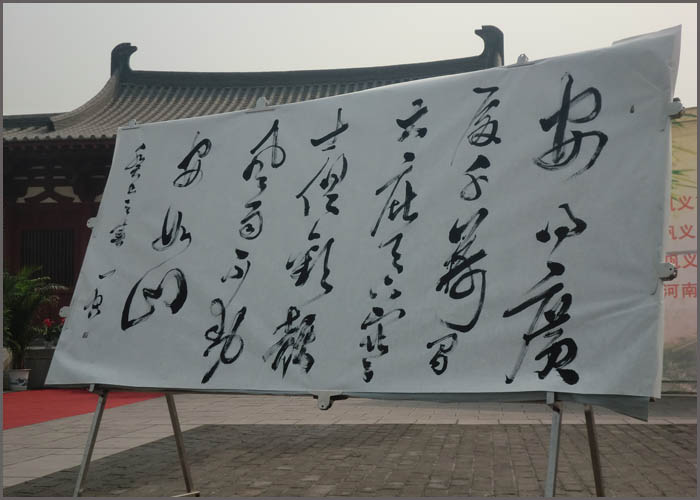 安得廣
厦千萬間
大庇天下寒
士俱歡顏
風雨不動
安如山
癸巳之
河南